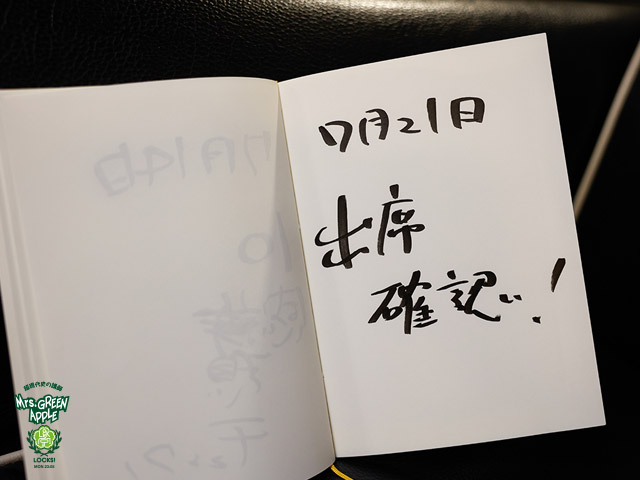 7月21日
出席
確認!
Mrs. GREEN
APPLE
LOCKS!